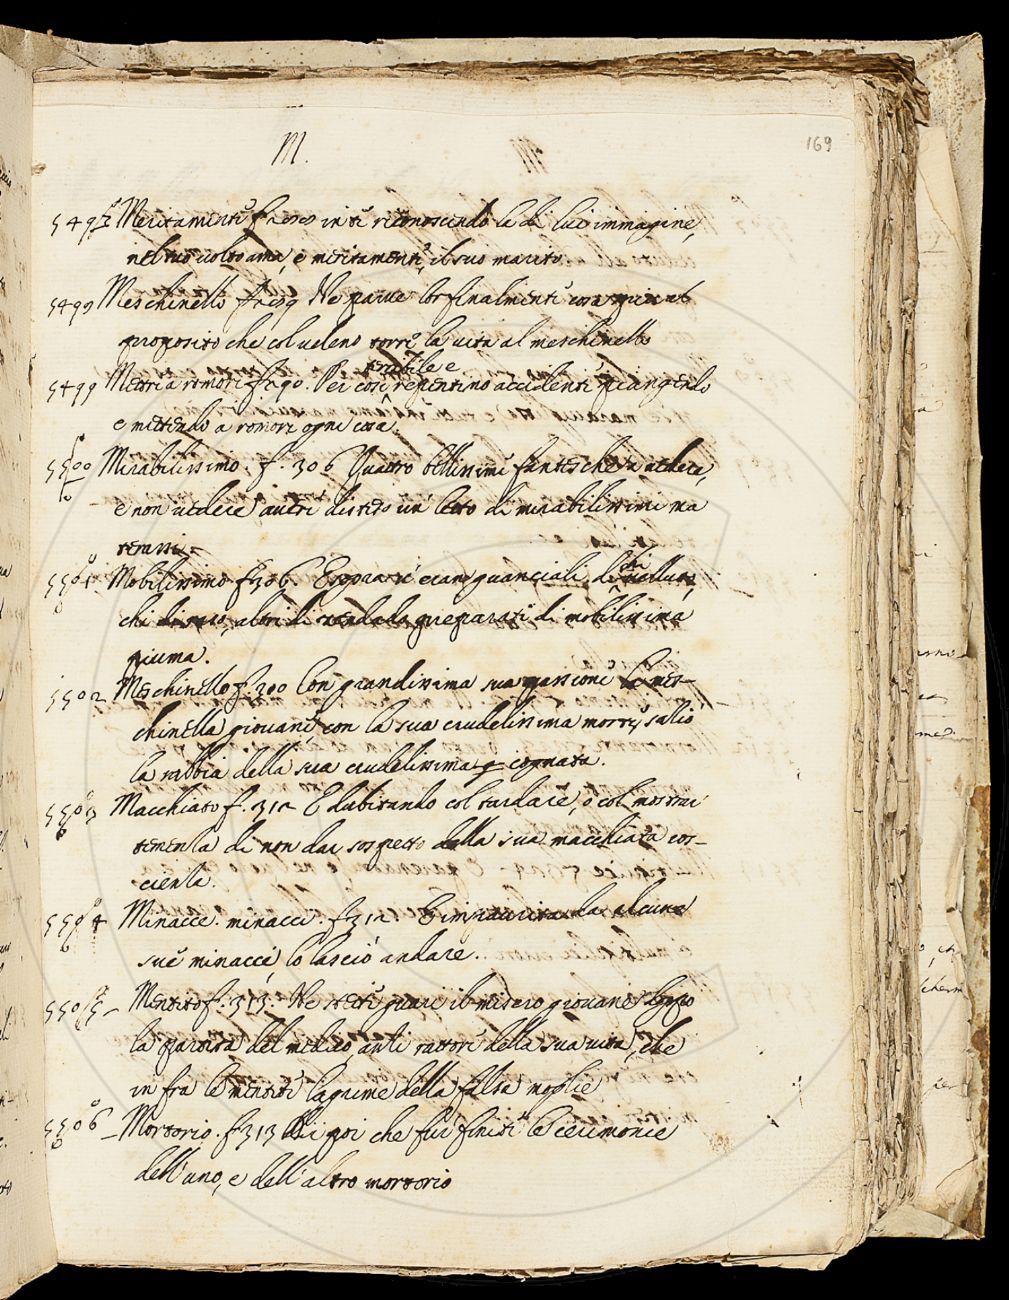 M.
169
5497 Meritamente f. 290 in te riconoscendo la di lui immagine,
nel tuo uolto ama, e meritamente, il suo marito.
5499 Meschinello f. 299 Ne parue lor finalmente cosa più al
proposito che col ueleno torre la uita al meschinello
terribile e
5499 Mettere a romore f. 290. Per così repentino accidente piangendo
e mettendo a romore ogni cosa.
5500 Mirabilissimo. f. 306 Quattro bellissime fantesche a uedere,
e non uedere auere disteso un' letto di mirabilissime ma
terassi.
5501 Mobilissimo f. 306. E sopra ui erano guanciali, di che uelluto,
che di raso, altri di zendado preparati di mobilissima
piuma.
5502 Meschinello f. 300 Con grandissima sua passione la mes-
chinella giouane con la sua crudelissima morte, saziò
la rabbia della sua crudelissima cognata.
5503 Macchiato f. 312 E dubitando col tardare, o col mostrar
temenza di non dar sospetto della sua macchiata cos-
cienza.
5504 Minacce. minacci. f. 312 E impaurita da alcune
sue minacce, lo lasciò andare.
5505 Mentito f. 313. Ne stette guari il misero giouane dopo
la partita del medico anzi rattore della sua uita, che
in fra le mentite lagrime della falsa moglie
5506 Mortorio. f. 313 Di poi che fur finite le cerimonie
dell' uno, e dell' altro mortorio